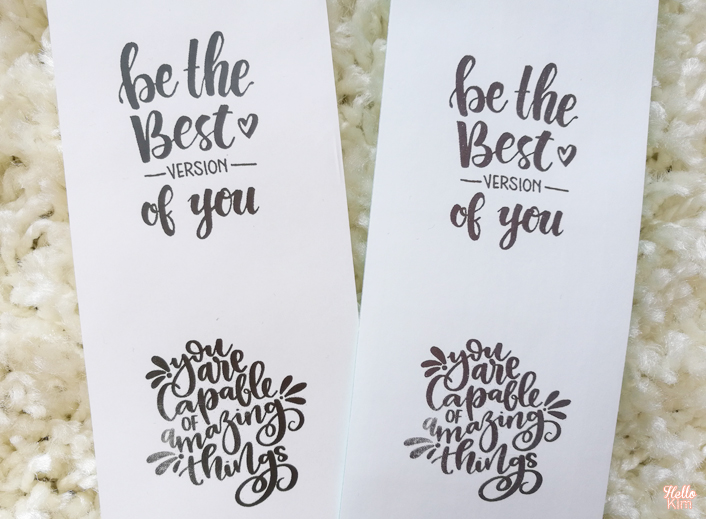 be the
Best
VERSION
of you
you
are
Capable
OF
amazing
things
be the
Best
VERSION
of you
you
are
Capable
OF
amazing
things
Hello
Kim